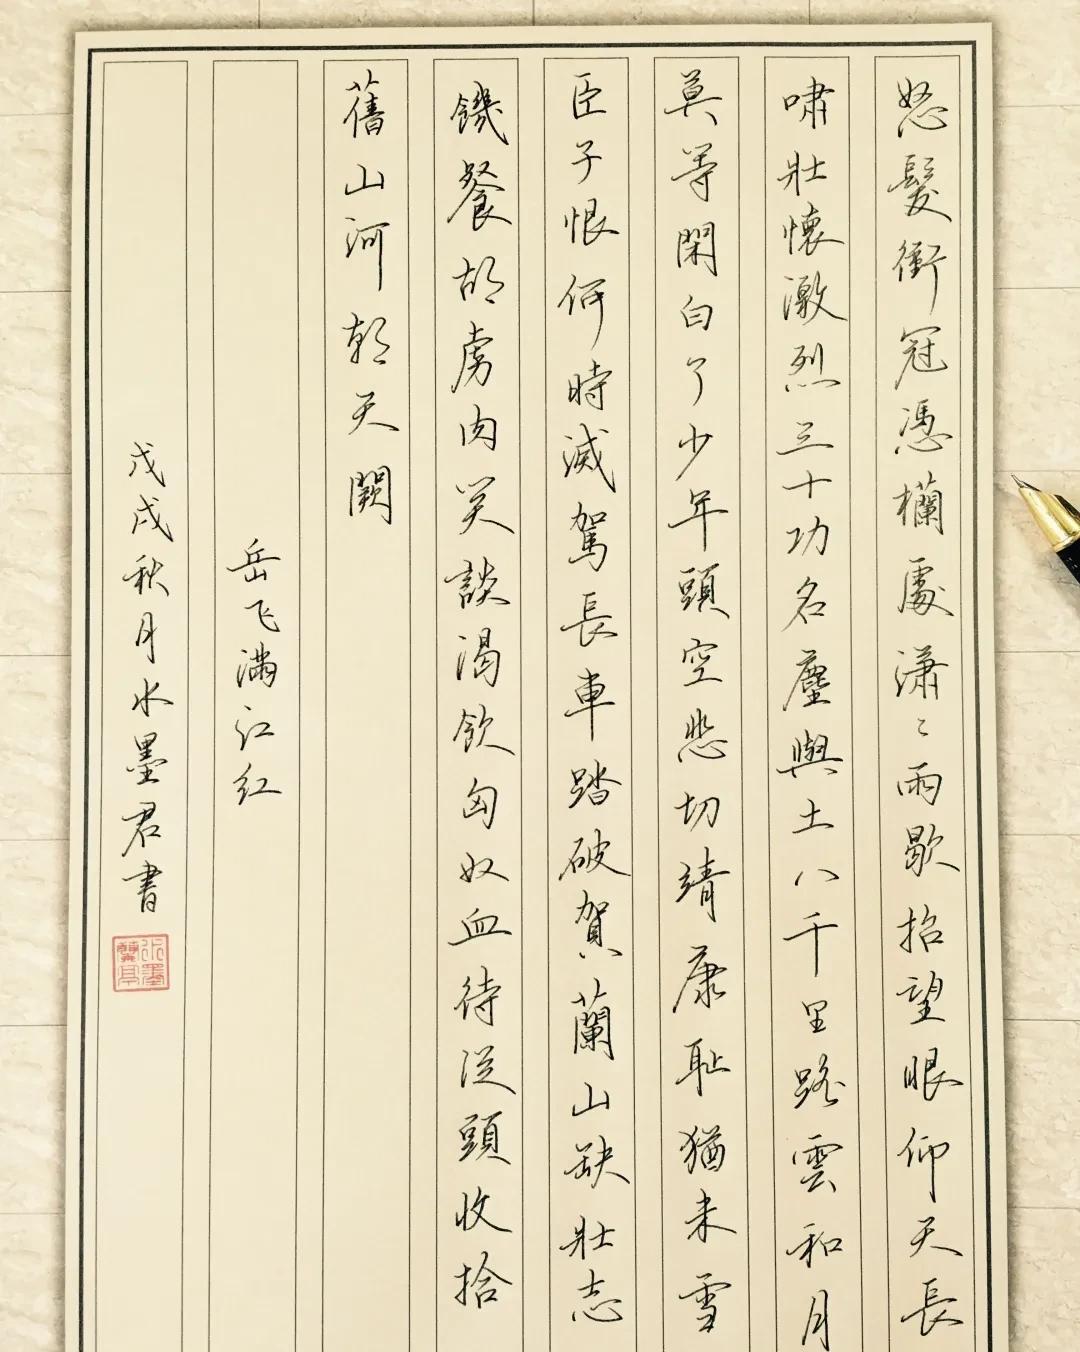 怒髮衝冠憑欄處潇〻雨歇抬望眼仰天長
嘯壯懷激烈三十功名塵與土八千里路雲和月
莫等閑白了少年頭空悲切靖康耻猶未雪
臣子恨何時滅駕長車踏破賀蘭山缺壯志
饑餐胡虜肉笑談渴飲匈奴血待從頭收拾
舊山河朝天闕
岳飞满江红
戊戌秋月水墨君書